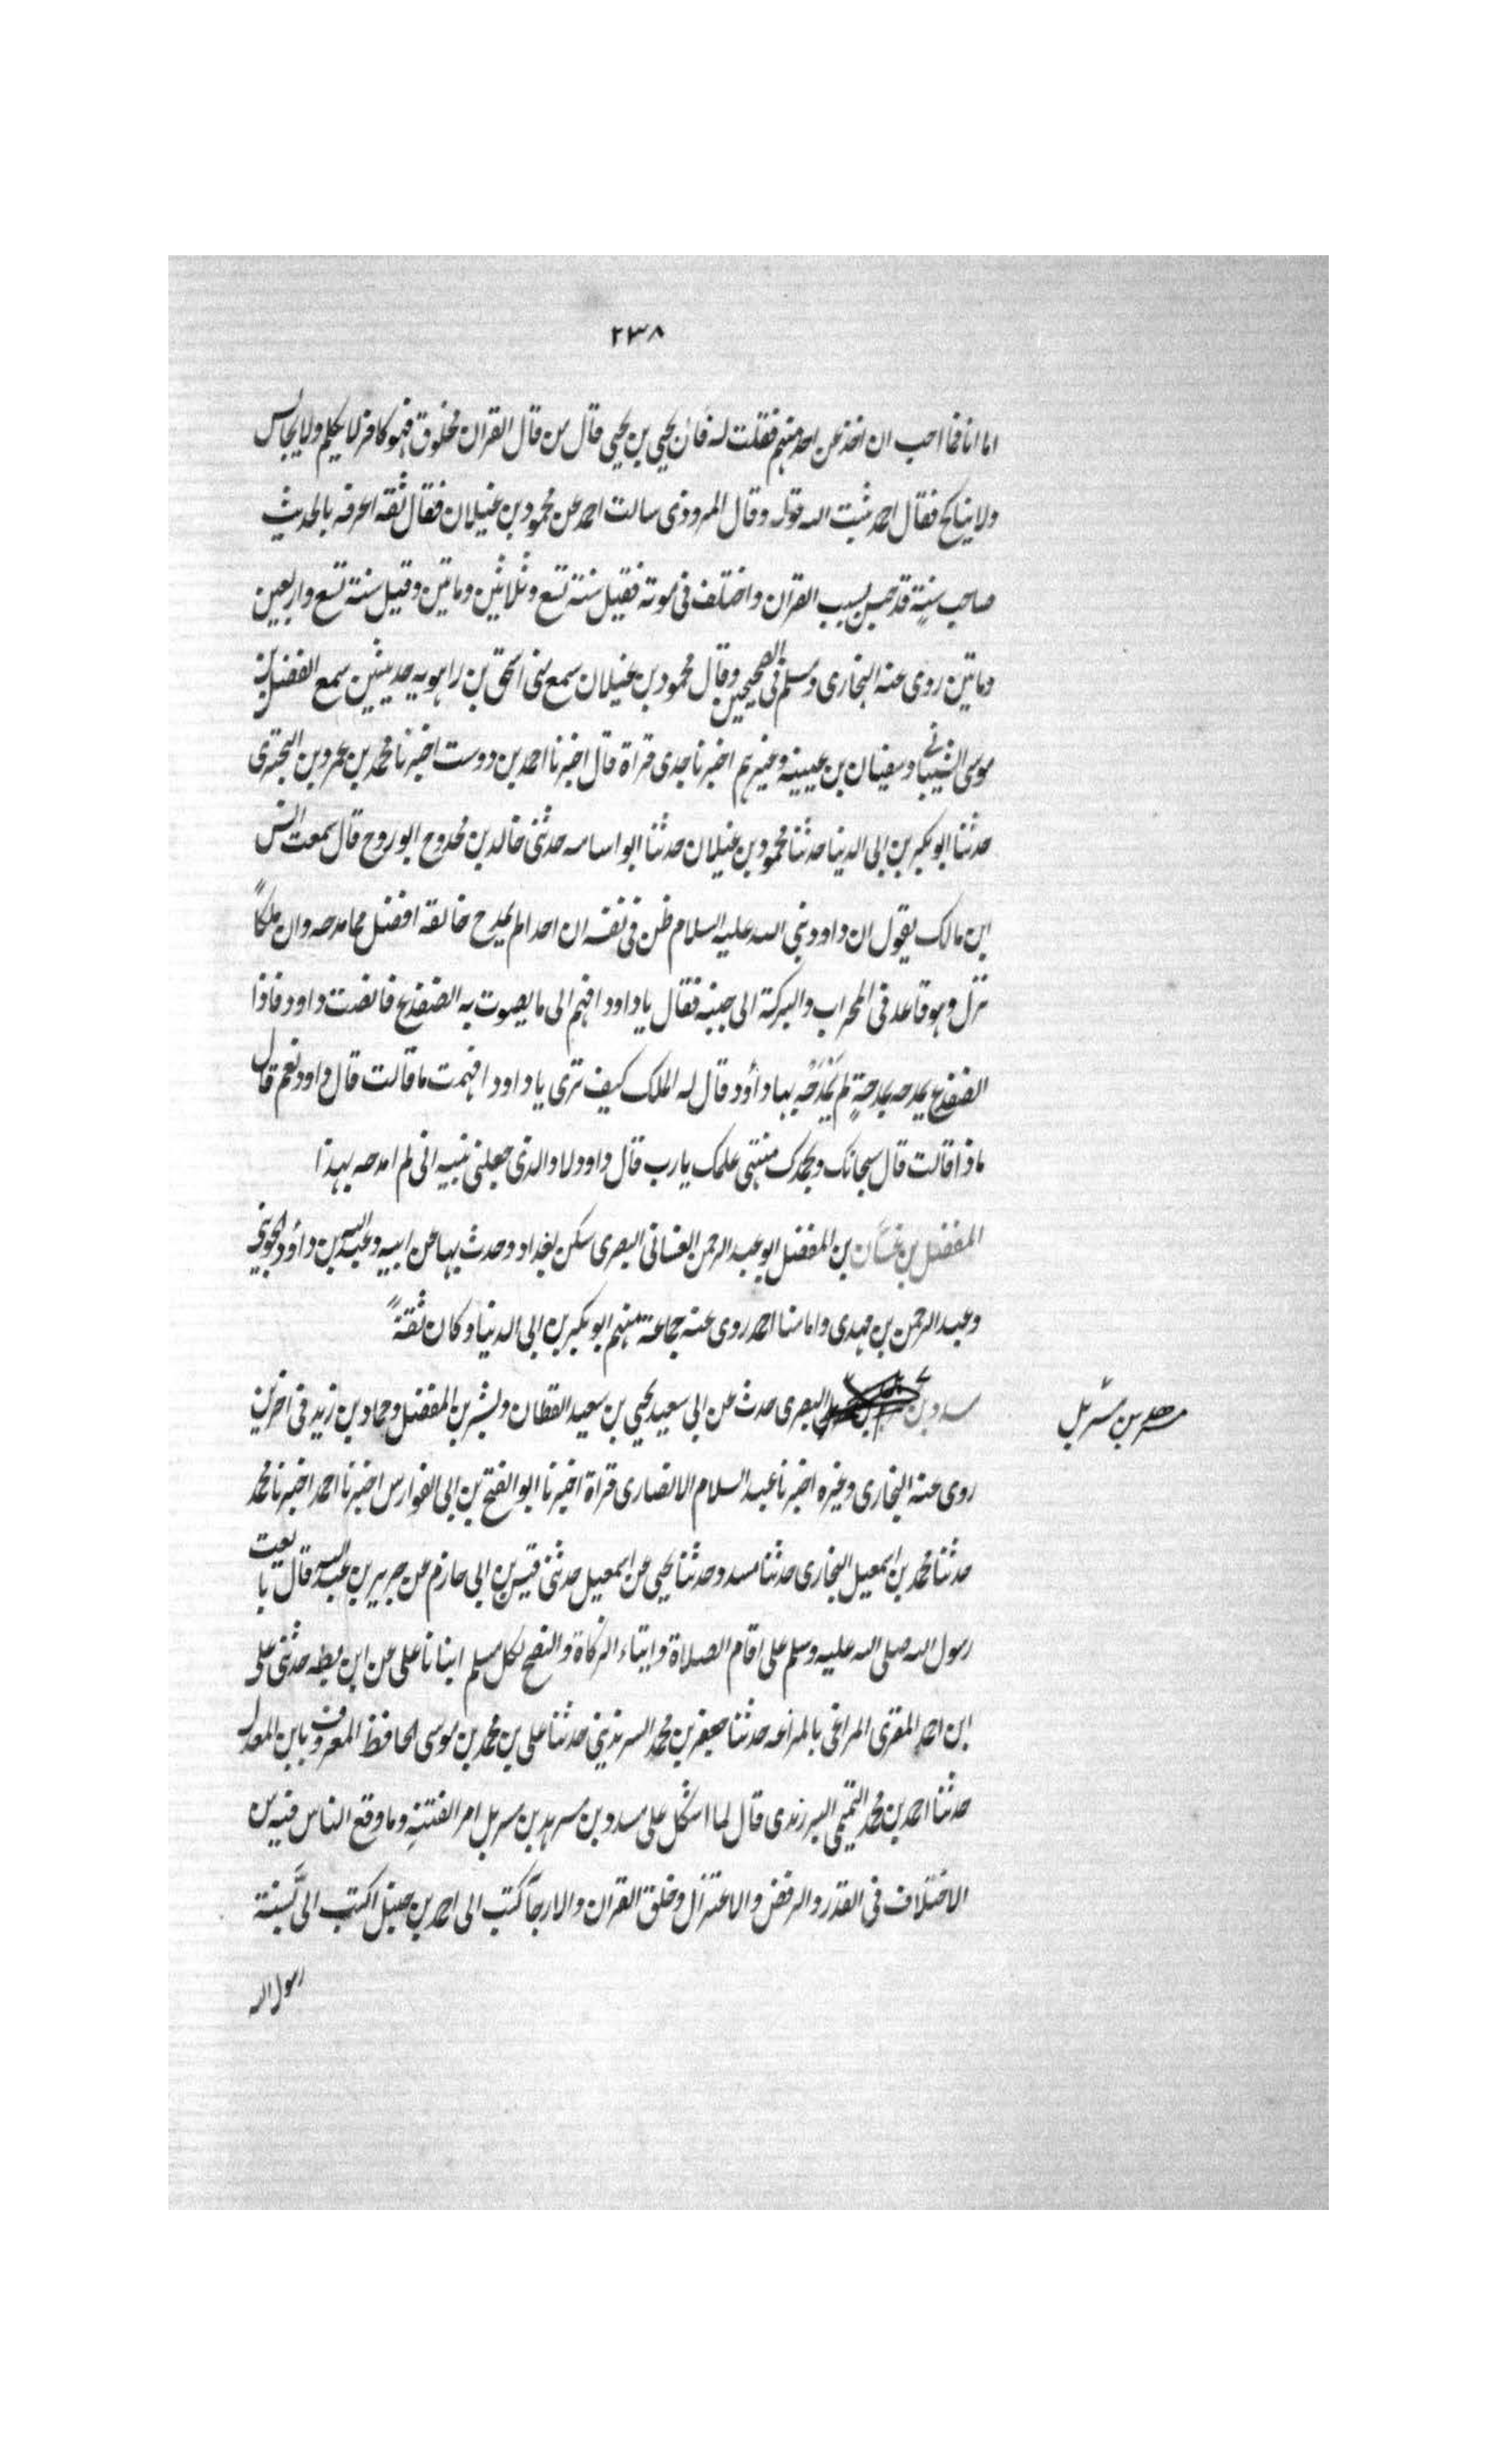 ٢٣٨
اما انا فما احب ان اخذ عن احد منهم فقلت له فان يحيى بن يحيى قال من قال القران مخلوق فهو كافر لا يكلم ولا يجالس
ولا يناكح فقال احمد ثبت الله قوله وقال المروذى سالت احمد عن محمود بن غيلان فقال ثقة اعرفه بالحديث
صاحب سنة قد حبس بسبب القران واختلف فى موته فقيل سنة تسع وثلاثين وماتين وقيل سنة تسع واربعين
وماتين روى عنه البخارى ومسلم فى الصحيحين وقال محمود بن غيلان سمع منى اسحق بن راهويه حديثين سمع الفضل بن
موسى الشيبانى وسفيان بن عيينة وغيرهم اخبرنا جدى قراة قال اخبرنا احمد بن دوست اخبرنا محمد بن عمرو بن البخترى
حدثنا ابو بكر بن ابى الدنيا حدثنا محمود بن غيلان حدثنا ابو اسامه حدثنى خالد بن محدوج ابو روح قال سمعت انس
ابن مالك يقول ان داود نبى الله عليه السلام ظن فى نفسه ان احدا لم يمدح خالقه افضل مما مدحه وان ملكاً
نزل وهو قاعد فى المحراب والبركة الى جنبه فقال يا داود افهم الى ما يصوت به الضفدع فانصت داود فاذا
الضفدع يمدحه بمدحةٍ لم يَمْدَحْه بها داؤد قال له الملك كيف ترى يا داود افهمت ما قالت قال داود نعم قال
ماذا قالت قال سبحانك وبحمدك منتهى علمك يا رب قال داود لا والذى جعلنى نبيه انى لم امدحه بهذا
المفضل بن غسان بن المفضل ابو عبد الرحمن الغسانى البصرى سكن بغداد وحدث بها عن ابيه وعبد الله بن داؤد الخريبى
وعبد الرحمن بن مهدى وامامنا احمد روى عنه جماعة منهم ابو بكر بن ابى الدنيا وكان ثقةً
مسدد بن البصرى حدث عن ابى سعيد يحيى بن سعيد القطان وبشر بن المفضل وحماد بن زيد فى اخرين
مسرهد بن مسربل
روى عنه البخارى وغيره اخبرنا عبد السلام الانصارى قراة اخبرنا ابو الفتح بن ابى الفوارس اخبرنا احمد اخبرنا محمد
حدثنا محمد بن اسمعيل البخارى حدثنا مسدد حدثنا يحيى عن اسمعيل حدثنى قيس بن ابى حازم عن جرير بن عبد الله قال بايعت
رسول الله صلى الله عليه وسلم على اقام الصلاة وايتاء الزكاة والنصح لكل مسلم انبانا على عن ابن بطه حدثنى على
ابن احمد المقرى المراغى بالمراغه حدثنا جعفر بن محمد السرندينى حدثنا على بن محمد بن موسى الحافظ المعروف بابن المعدل
حدثنا احمد بن محمد التميمى البرزندى قال لما اشكل على مسدد بن مسرهد بن مسربل امر الفتنةِ وما وقع الناس فيه من
الاختلاف فى القدر والرفض والاعتزال وخلق القران والارجاَ كتب الى احمد بن حنبل اكتب الىَّ بسنة
رسول الله